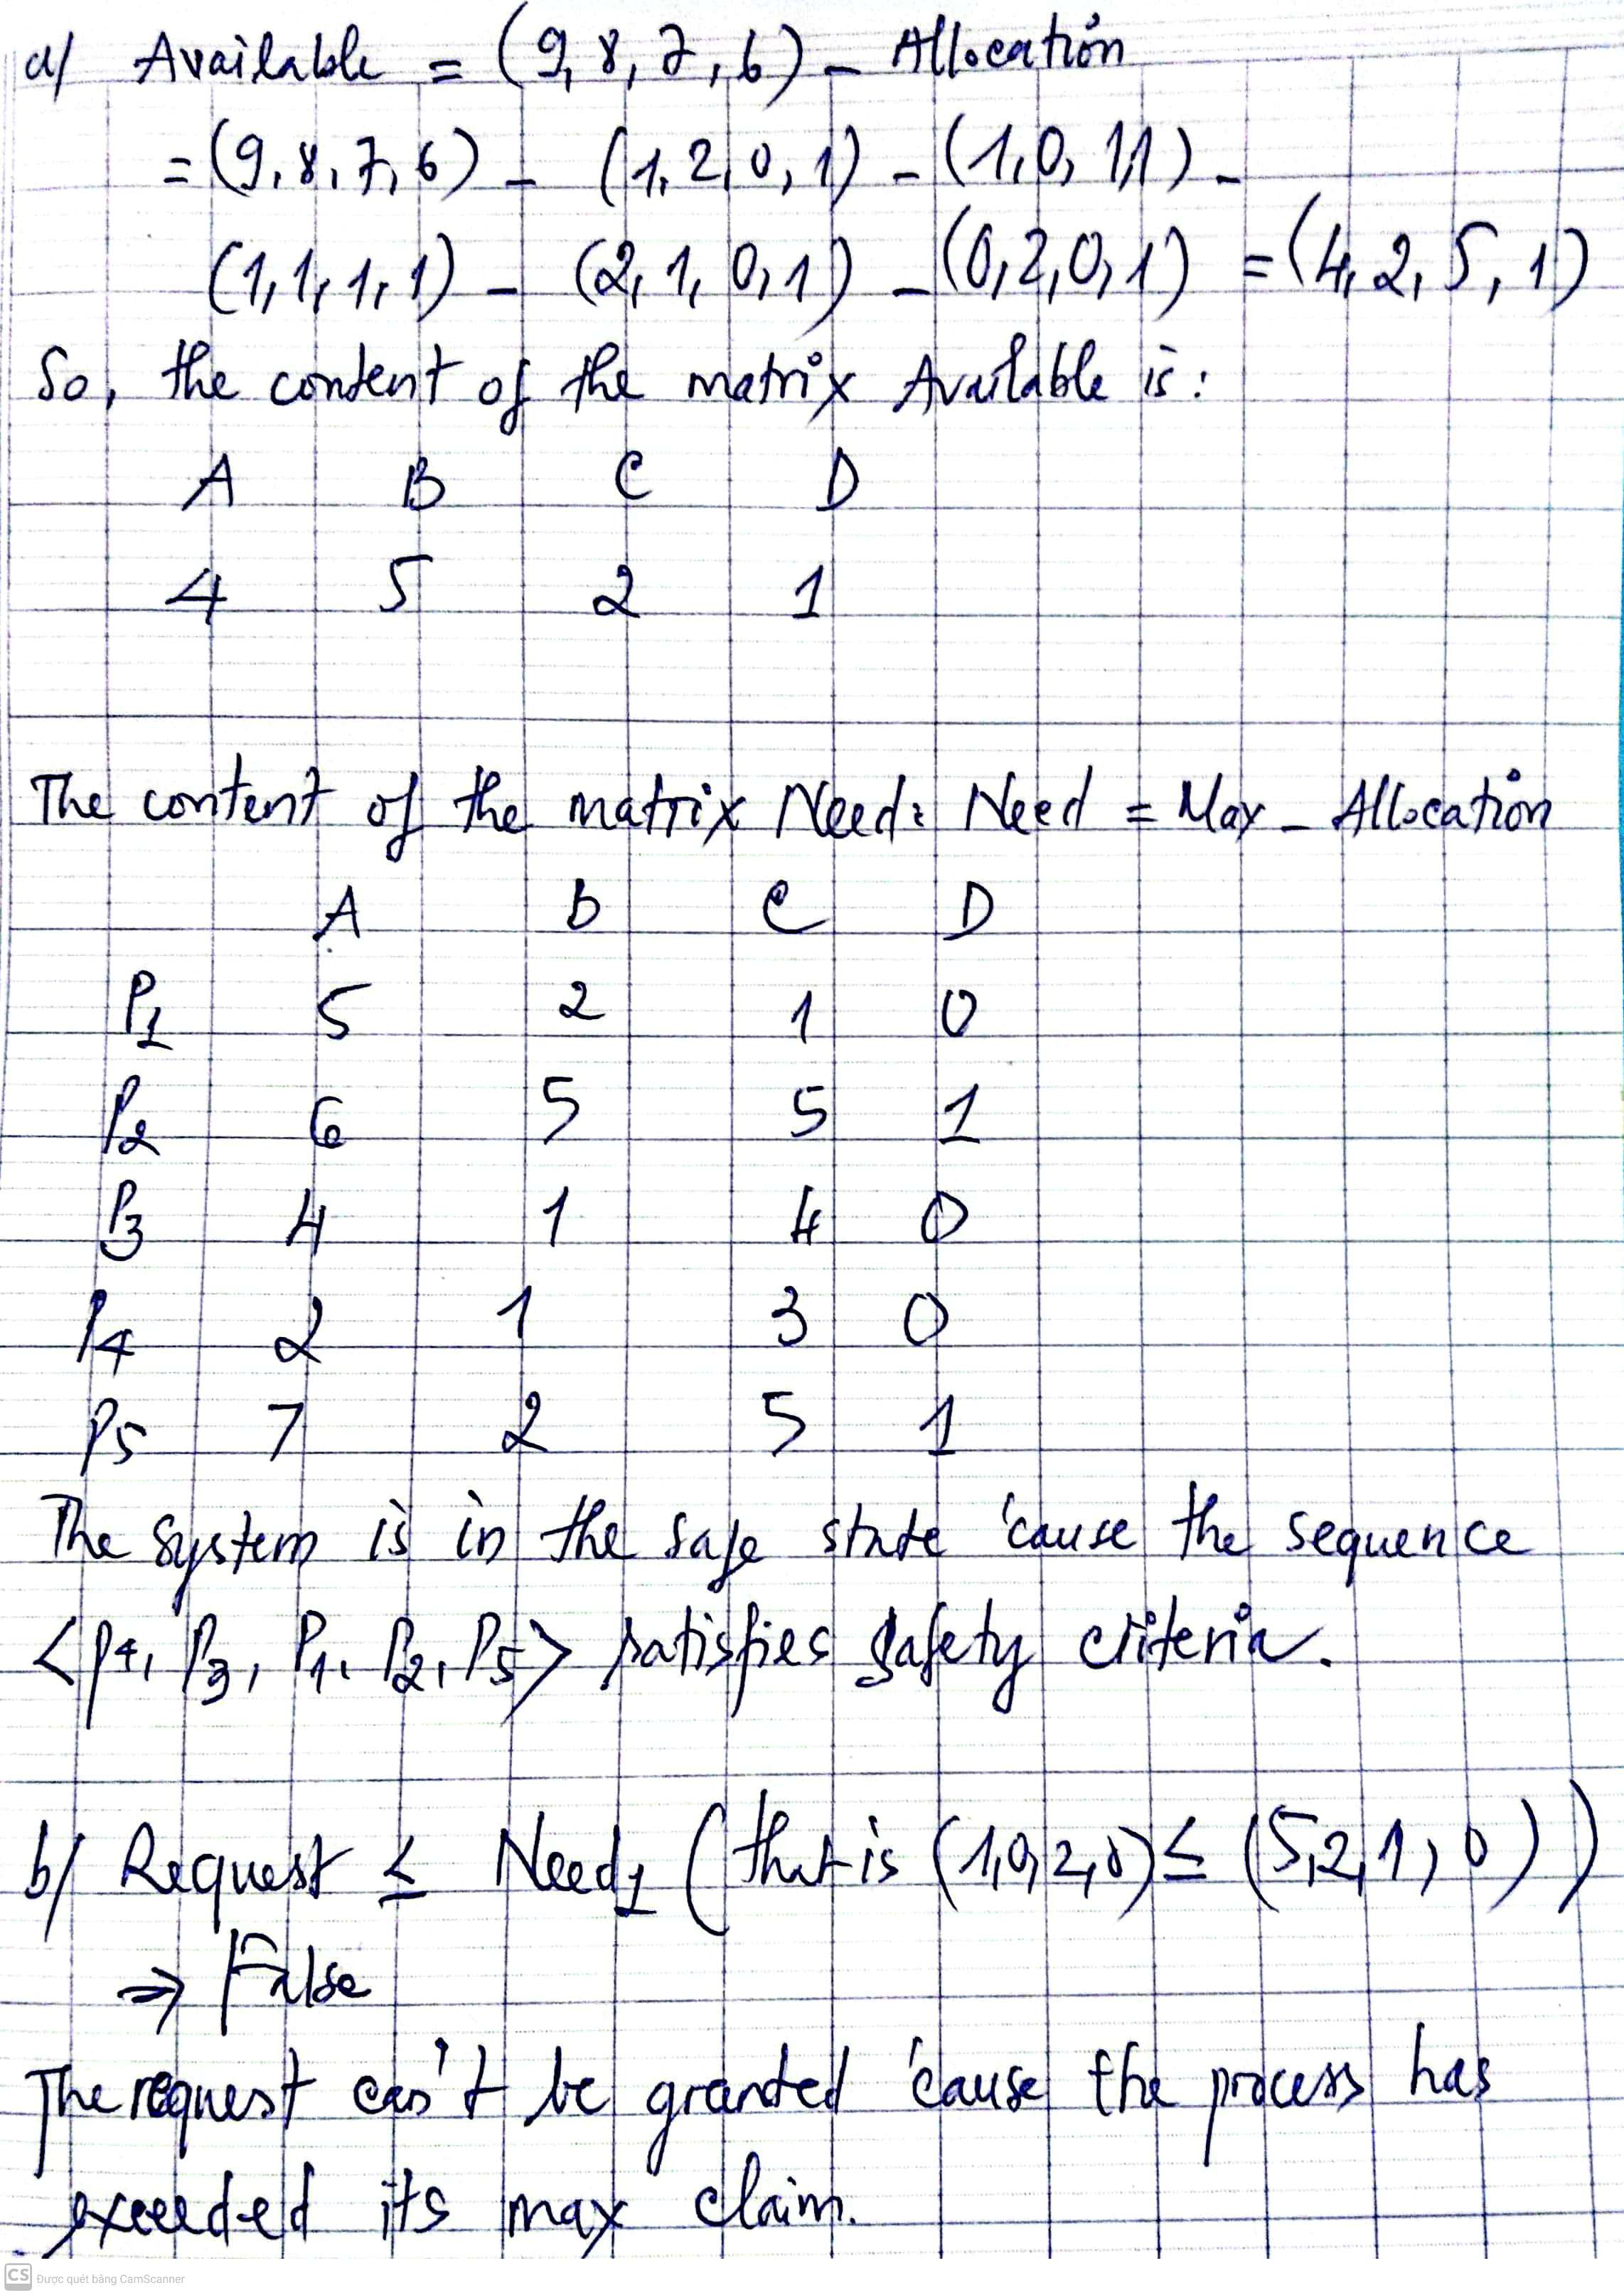 a/ Available = (9, 8, 7, 6) - Allocation
= (9, 8, 7, 6) - (1, 2, 0, 1) - (1, 0, 1, 1) -
(1, 1, 1, 1) - (2, 1, 0, 1) - (0, 2, 0, 1) = (4, 2, 5, 1)
So, the content of the matrix Available is:
A B C D
4 5 2 1
The content of the matrix Need: Need = Max - Allocation
A B C D
P1 5 2 1 0
P2 6 5 5 1
P3 4 1 4 0
P4 2 1 3 0
P5 7 2 5 1
The system is in the safe state 'cause the sequence
<P4, P3, P1, P2, P5> satisfies safety criteria.
b/ Request ≤ Need1 (that is (1,0,2,0) ≤ (5,2,1,0))
⇒ False
The request can't be granted 'cause the process has
exceeded its max claim.
CS Được quét bằng CamScanner